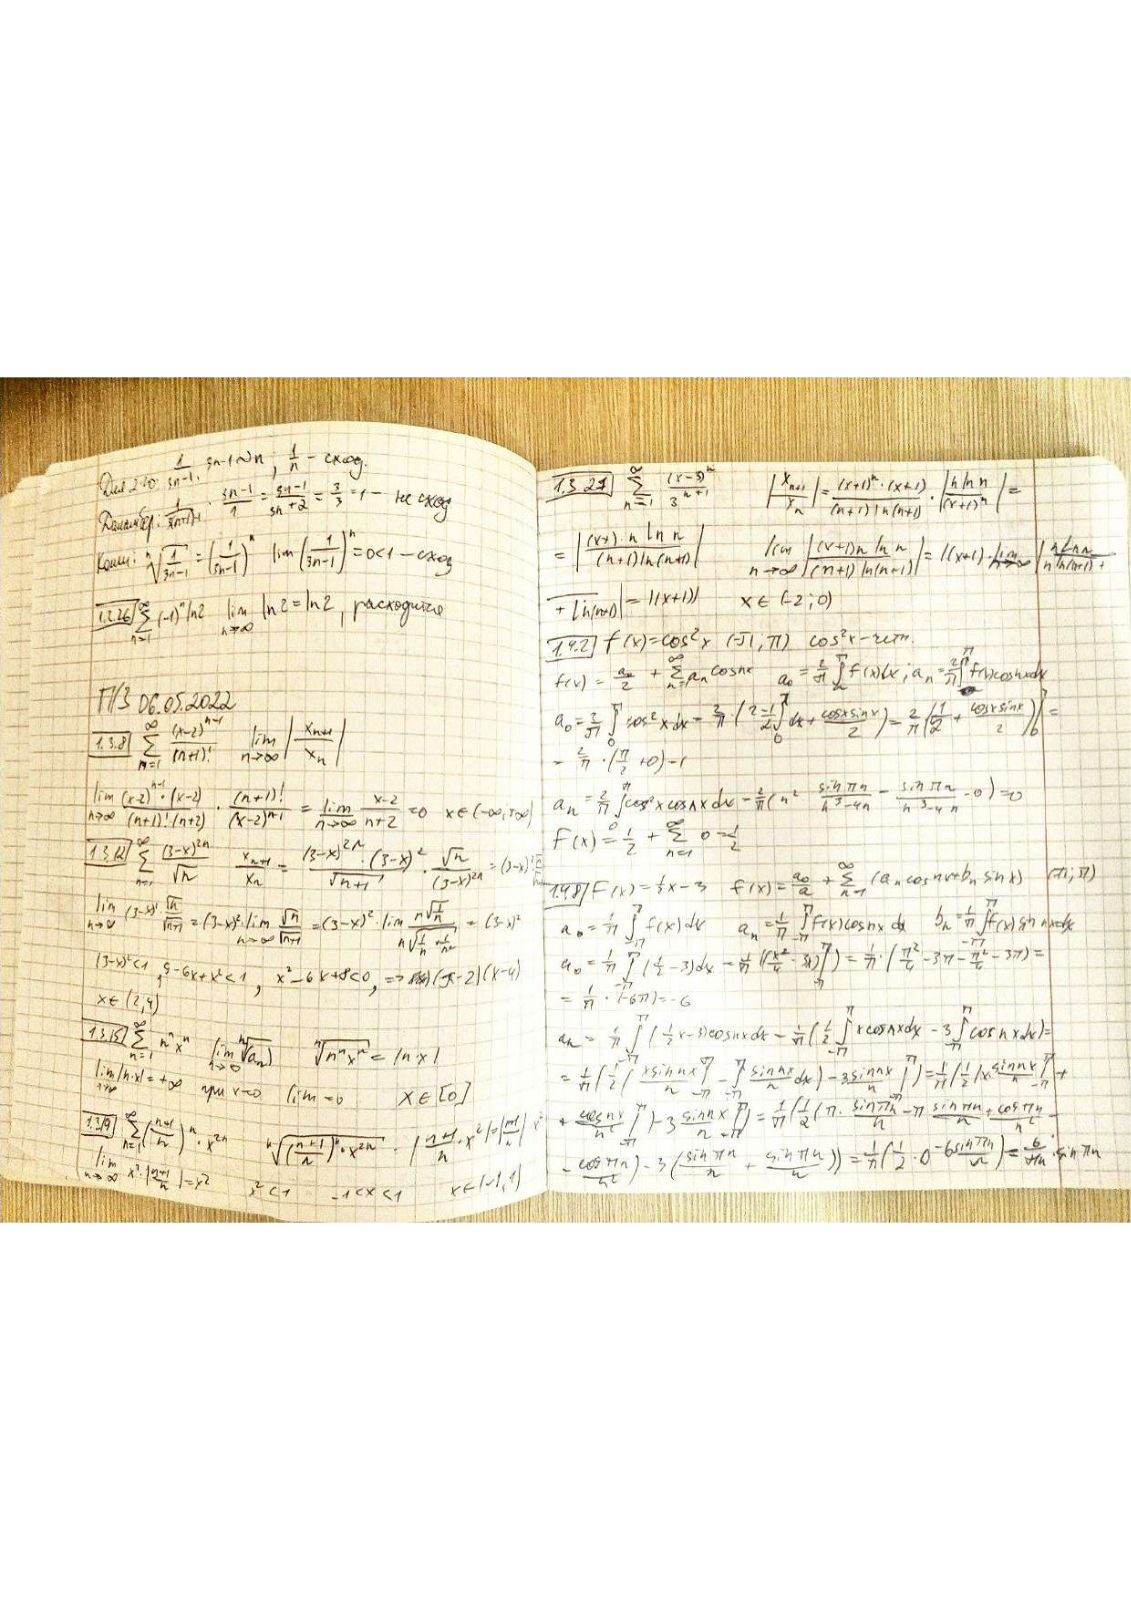 1/(3n-1), 3n-1~n, 1/n - сход.
1/(3(n+1)-1) · (3n-1)/1 = (3n-1)/(3n+2) = 3/3 = 1 - не сход
Коши: ⁿ√(1/(3n-1)) = (1/(3n-1))ⁿ lim (1/(3n-1))ⁿ = 0<1 - сход
1.2.26 ∑_{n=1}^{∞} (-1)ⁿ ln2 lim_{n→∞} ln2 = ln2, расходится
ПЗ 06.05.2022
1.3.8 ∑_{n=1}^{∞} (x-2)^{n-1}/(n+1)! lim_{n→∞} |x_{n+1}/x_n|
lim_{n→∞} (x-2)^{n-1}·(x-2)/((n+1)!·(n+2)) · (n+1)!/(x-2)^{n-1} = lim_{n→∞} (x-2)/(n+2) = 0 x∈(-∞,+∞)
1.3.12 ∑_{n=1}^{∞} (3-x)^{2n}/√n x_{n+1}/x_n = (3-x)^{2n}·(3-x)²/√(n+1) · √n/(3-x)^{2n} = (3-x)²
lim_{n→∞} (3-x)² √n/√(n+1) = (3-x)²·lim_{n→∞} √n/√(n+1) = (3-x)²·lim n√(1/n)/(n√(1/n+1/n²)) = (3-x)²
(3-x)²<1, 9-6x+x²<1, x²-6x+8<0, => (x-2)(x-4)
x∈(2,4)
1.3.15 ∑_{n=1}^{∞} nⁿxⁿ lim_{n→∞} ⁿ√(a_n) ⁿ√(nⁿxⁿ) = |n·x|
lim |n·x| = +∞ при x=0 lim = 0 x∈[0]
1.3.19 ∑_{n=1}^{∞} ((n+1)/n)ⁿ·x^{2n} ⁿ√(((n+1)/n)ⁿ·x^{2n}) = |(n+1)/n·x²| = |(n+1)/n| x²
lim_{n→∞} x²·|(n+1)/n| = x² x²<1 -1<x<1 x∈(-1,1)
1.3.27 ∑_{n=1}^{∞} (x-3)ⁿ/3^{n+1} |x_{n+1}/x_n| = (x+1)ⁿ·(x+1)/((n+1)ln(n+1)) · |n ln n/(x+1)ⁿ| =
= |(x+1) n ln n/((n+1)ln(n+1))| lim_{n→∞} |(x+1)n ln n/((n+1)ln(n+1))| = |(x+1)·lim_{n→∞} |n ln n/(n ln(n+1)+
+ln(n+1))| = |(x+1)| x∈(-2;0)
1.4.2 f(x) = cos²x (-π, π) cos²x - чётн.
f(x) = a₀/2 + ∑_{n=1}^{∞} a_n cosnx a₀ = 2/π ∫ f(x)dx; a_n = 2/π ∫ f(x)cosnxdx
a₀ = 2/π ∫₀^π cos²x dx = 2/π · (2-1/2 ∫₀^π dx + cosxsinx/2) = 2/π (1/2 + cosxsinx/2)|₀^π =
= 2/π · (π/2 + 0) = 1
a_n = 2/π ∫₀^π cos²x cosnx dx = 2/π (n² sinπn/(n³-4n) - sinπn/(n³-4n) - 0) = 0
F(x) = 1/2 + ∑_{n=1}^{∞} 0 = 1/2
1.4.8 F(x) = 1/2 x-3 f(x) = a₀/2 + ∑_{n=1}^{∞} (a_n cosnx + b_n sinx) (-π; π)
a₀ = 1/π ∫_{-π}^{π} f(x)dx a_n = 1/π ∫_{-π}^{π} f(x)cosnx dx b_n = 1/π ∫_{-π}^{π} f(x) sin nxdx
a₀ = 1/π ∫_{-π}^{π} (1/2 -3)dx = 1/π ((x²/4 - 3x)|_{-π}^{π}) = 1/π · (π²/4 - 3π - π²/4 - 3π) =
= 1/π · (-6π) = -6
a_n = 1/π ∫_{-π}^{π} (1/2 x-3)cosnxdx = 1/π (1/2 ∫_{-π}^{π} xcosnxdx - 3∫_{-π}^{π} cosnxdx) =
= 1/π (1/2 (xsinnx/n |_{-π}^{π} - ∫_{-π}^{π} sinnx/n dx) - 3sinnx/n |_{-π}^{π}) = 1/π (1/2 (x sinnx/n |_{-π}^{π} +
+ cosnx/n² |_{-π}^{π}) - 3 sinnx/n |_{-π}^{π}) = 1/π (1/2 (π· sinπn/n - π sinπn/n + cosπn/n² -
- cosπn/n²) - 3(sinπn/n + sinπn/n)) = 1/π (1/2 · 0 - 6sinπn/n) = 6/πn · sinπn